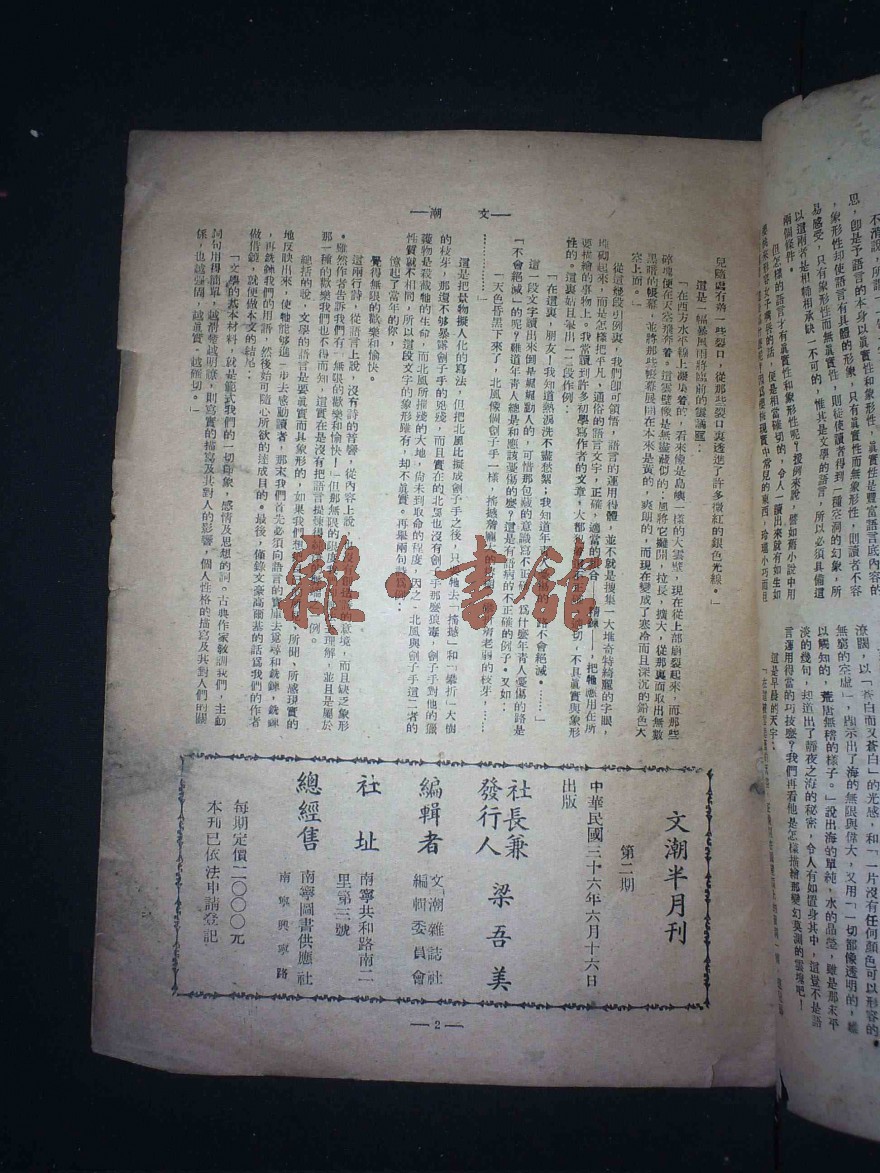 不消說，所謂
思，卽是予語言的本身以眞實性和象形性，眞實性是豐富語言底內容
，象形性却使語言有具體的形象，只有眞實性而無象形性，則讀者不容
易感受，只有象形性而無眞實性，則徒使讀者得到一種空洞的幻象，所
以這兩者是相輔相承缺一不可的，惟其是文學的語言，所以必須具備這
兩個條件。
但怎樣的語言才有眞實性和象形性呢？擧例來說，譬如舊小說中用
遼闊，以「蒼白而又蒼白」的光感，和「一片沒有任何顏色可以形容的
無窮的空虛」，啟示出了海的無限與偉大，又用「一切都像透明的，縱
以觸知的，荒唐無稽的樣子。」說出海的單純，水的晶瑩，雖是那末平
淡的幾句，却道出了靜夜之海的秘密，令人有如置身其中，這豈不是語
言運用得當的巧技麼？我們再看他是怎樣描繪那變幻莫測的雲塊吧！
這是早晨的天宇：
—文潮—
兒隨處有着一些裂口，從那些裂口裏透進了許多微紅的銀色光線。」
這是一幅暴風雨將臨前的雲議圖：
「在西方水平線上凝集着的，看來像是島嶼一樣的大雲壁，現在從上部崩裂起來，而那些
碎塊便在天空飛奔着。這雲壁像是無盡藏似的：風將它離開，拉長，擴大，從那裏面取出無數
黑暗的帳幕，並將那些帳幕展開在本來是黃的，爽朗的，而現在變成了寒冷而且深沉的鉛色天
空上面。」
從這幾段引例裏，我們卽可領悟，語言的運用得體，並不就是搜集一大堆奇特綺麗的字眼，
堆砌起來，而是怎樣把平凡，通俗的語言文字，正確，適當的
要描繪的事物上。我常讀到許多初學寫作者的文章，大都
性的。這裏姑且舉出一二段作例：
「在這裏，朋友！我知道熱淚洗不盡愁絮，我知道年
這一段文字讀出來倒是娓娓動人的，可惜那包藏的意識寫不正確，爲什麼年青人憂傷的路是
「不會絕滅」的呢，難道年青人總是和應該憂傷的麼？這是有語病的不正確的例子。又如：
「天色昏黑下來了，北風像個劊子手一樣，
……………」
這是把景物擬人化的寫法，但把北風比擬成劊子手之後，只
的枝芽，那還不够暴露劊子手的兇殘，而且實在的北風也沒有劊子手那麼狼毒，劊子手對他的獵
獲物是殺截牠的生命，而北風所摧殘的大地，尙未到取命的程度，因之，北風與劊子手這二者的
性質就不相同，所以這段文字的象形雖有，却不眞實。再舉兩句
憧起了當年的你，
覺得無限的歡樂和愉快。
這兩行詩，從語言上說，沒有詩的音響，從內容上說，
意境，而且缺乏象形
。雖然作者告訴我們有「無限的歡樂和愉快」！但那無限的限度
去理解，並且是屬於
那一種的歡樂我們也不得而知，這實在是沒有把語言提煉得
例。
總括的說，文學的語言是要眞實而具象形的，如果我們想
所聞、所感現實的
地反映出來，使牠能够進一步去感動讀者，那末我們首先必須向語言的寶庫去覓尋和銑鍊，銑鍊
，再銑鍊我們的用語，然後始可隨心所欲的達成目的。最後，僅錄文豪高爾基的話爲我們的作者
做借鏡，就便做本文的結尾：
「文學的基本材料，就是範式我們的一切印象，感情及思想的詞。古典作家敎訓我們，主動
詞句用得簡單，越淸楚越明瞭，則寫實的描寫及其對人的影響，個人性格的描寫及其對人們的關
係，也越強固，越眞實，越確切。」
文潮半月刊
第二期
中華民國三十六年六月十六日
出版
社長兼
發行人 梁吾美
編輯者 文潮雜誌社
編輯委員會
社址 南寧共和路南二
里第三號
總經售 南寧圖書供應社
南寧興寧路
每期定價二〇〇〇元
本刊已依法申請登記
—2—
雜·書館